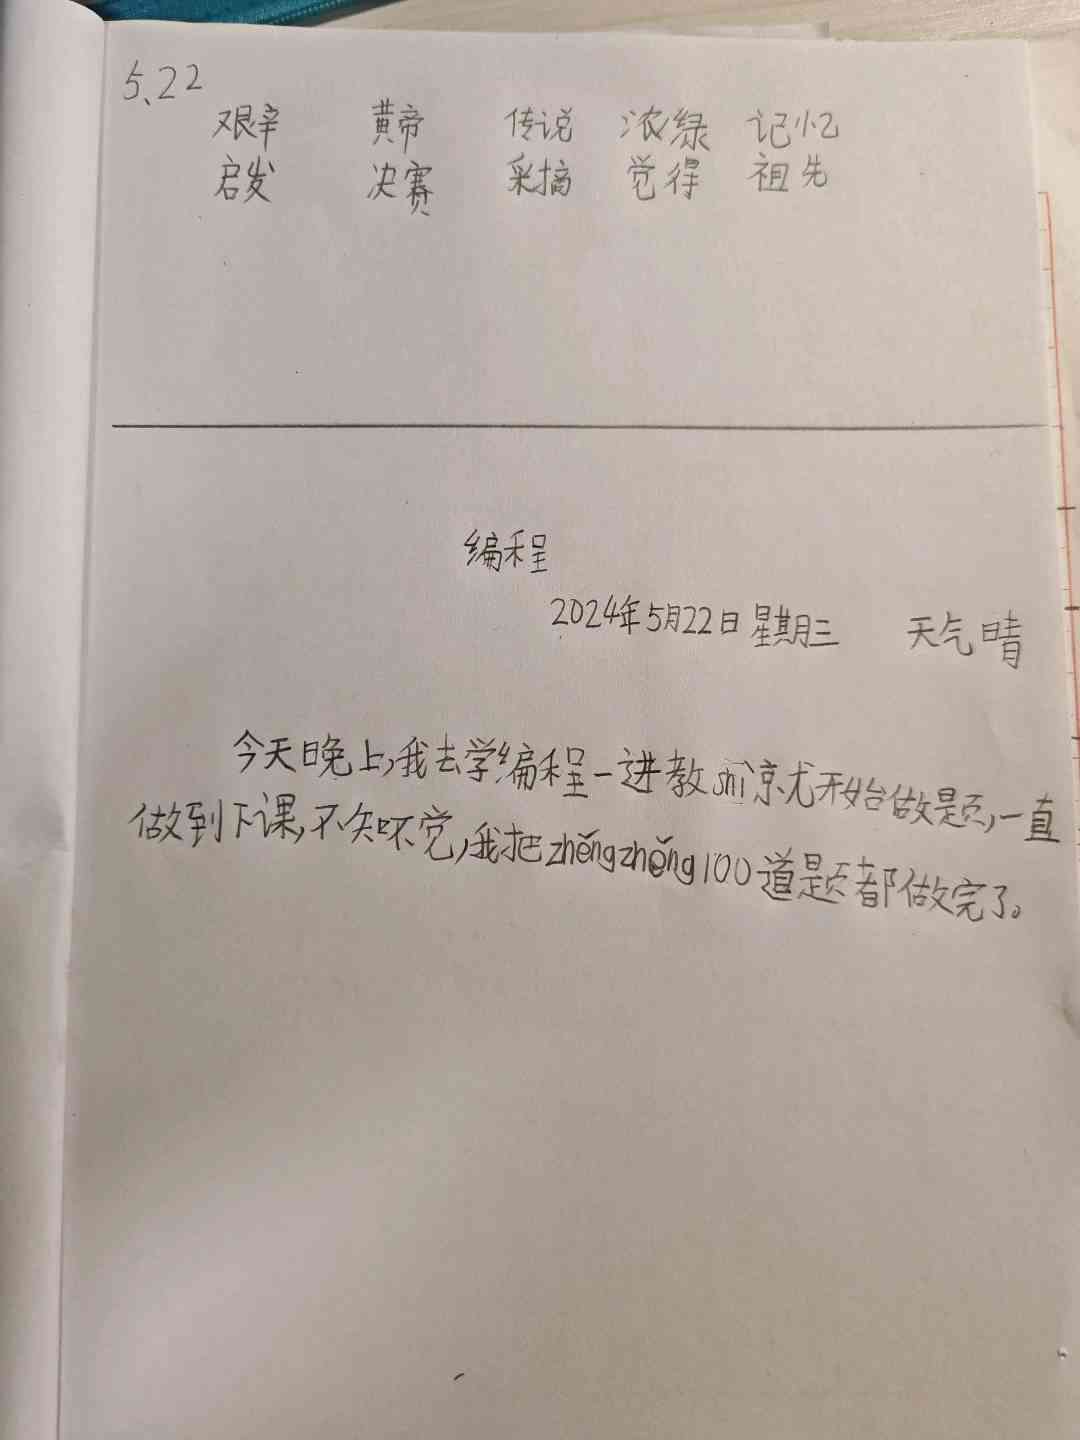 5、22
艰辛 黄帝 传说 浓绿 记忆
启发 决赛 采摘 觉得 祖先
编程
2024年5月22日 星期三 天气晴
今天晚上,我去学编程一进教shì就开始做题,一直
做到下课,不知不觉,我把zhěngzhěng100道题都做完了。